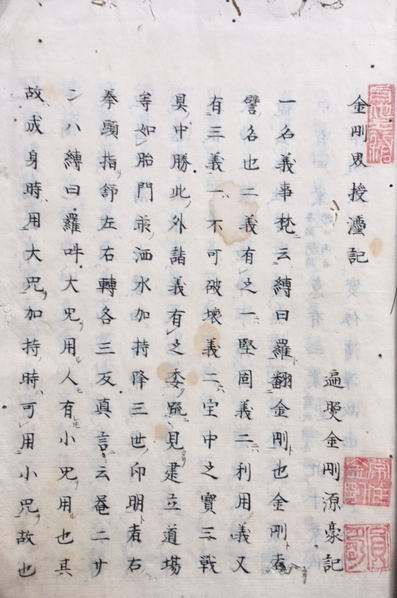 金剛界授灋記
遍𭎃金剛源豪記
一名義事梵云縛曰羅翻金剛也金剛者
譬名也二義有之一堅固義二利用義又
有三義一不可破壞義二宝中之寶三戰
具中勝此外諸義有之委㲉見建立道場
等如胎門乖洒水加持降三世印明者右
拳頭指舒左右轉各三反真言云菴二廾
二八縛曰羅吽大咒用人有小咒用也其
故成身時用大咒加持時可用小咒故也